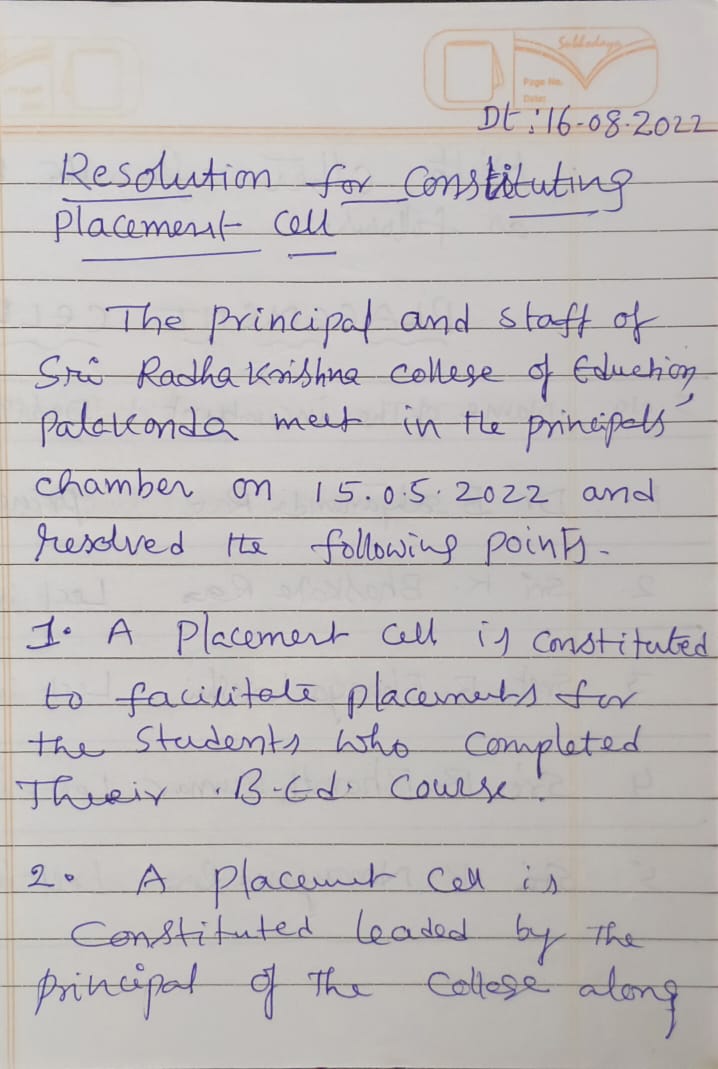 Subhodaya
Page No.
Date:
Dt: 16-08-2022
Resolution for Constituting
Placement Cell
The principal and staff of
Sri Radha Krishna college of Eduction,
Palakonda meet in the principals'
chamber on 15.05.2022 and
resolved the following points.
1. A Placement cell is constituted
to facilitate placements for
the students who completed
Their B.Ed. course.
2. A placement cell is
Constituted leaded by the
principal of the college along